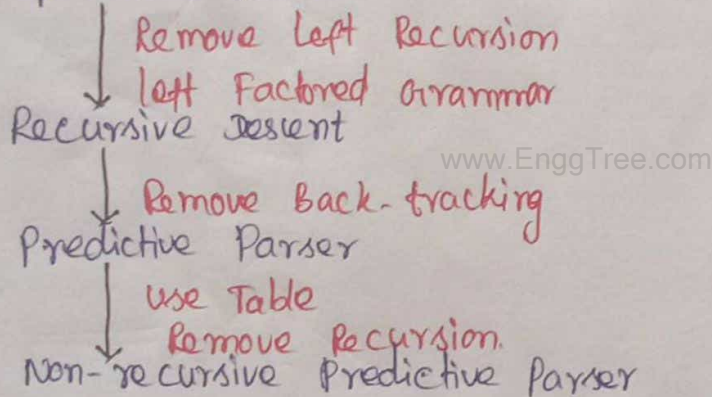 Remove Left Recursion
left Factored Grammar
Recursive Descent
www.EnggTree.com
Remove Back-tracking
Predictive Parser
Use Table
Remove Recursion.
Non-recursive Predictive Parser